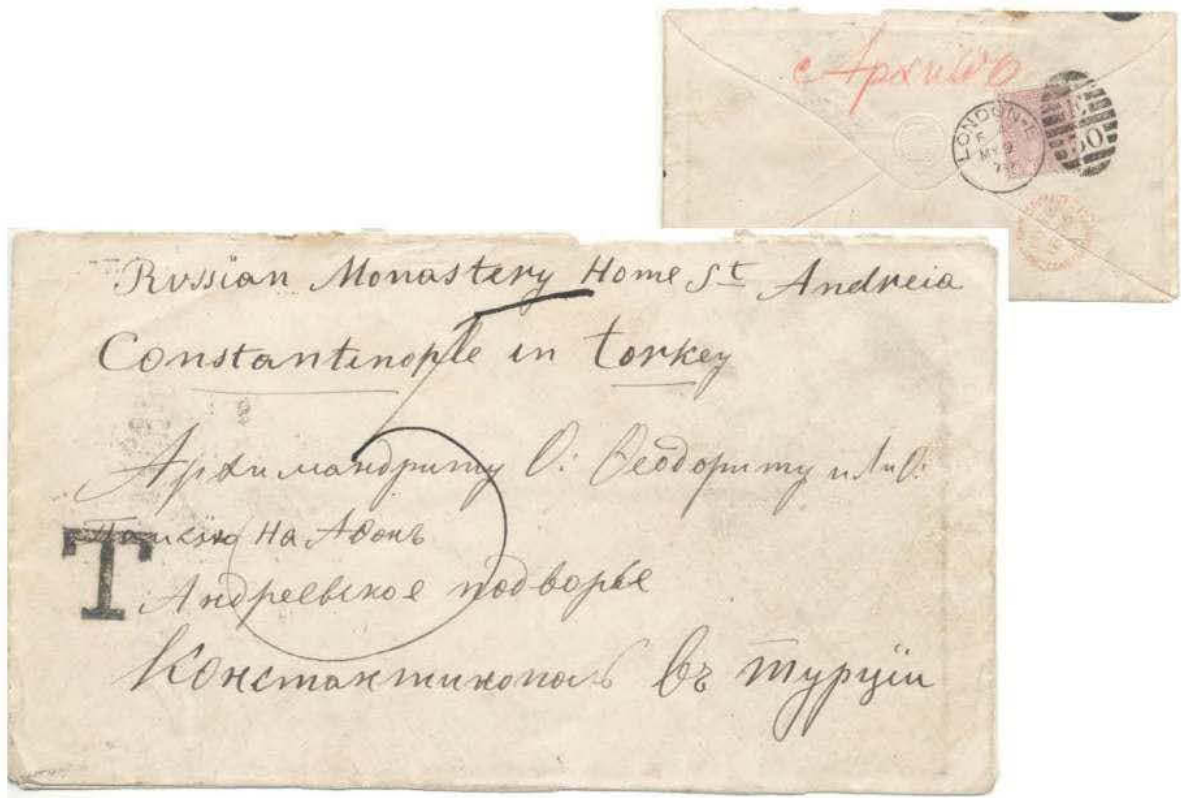 с Архив
LONDON·E
MY 9
Russian Monastery Home St Andreia
Constantinople in Torkey
Архимандриту О: Ѳеодориту или О:
на Аѳонъ
Андреевское подворье
T
5
Константинополь въ Турціи